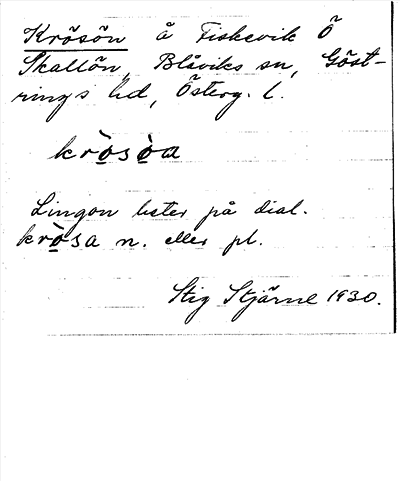 Krösön å Fiskevik Ö
Skallön, Blåviks sn, Göst-
rings hd, Österg. l.
kròsòa
Lingon heter på dial.
kròsa n. eller pl.
Stig Stjärne 1930.